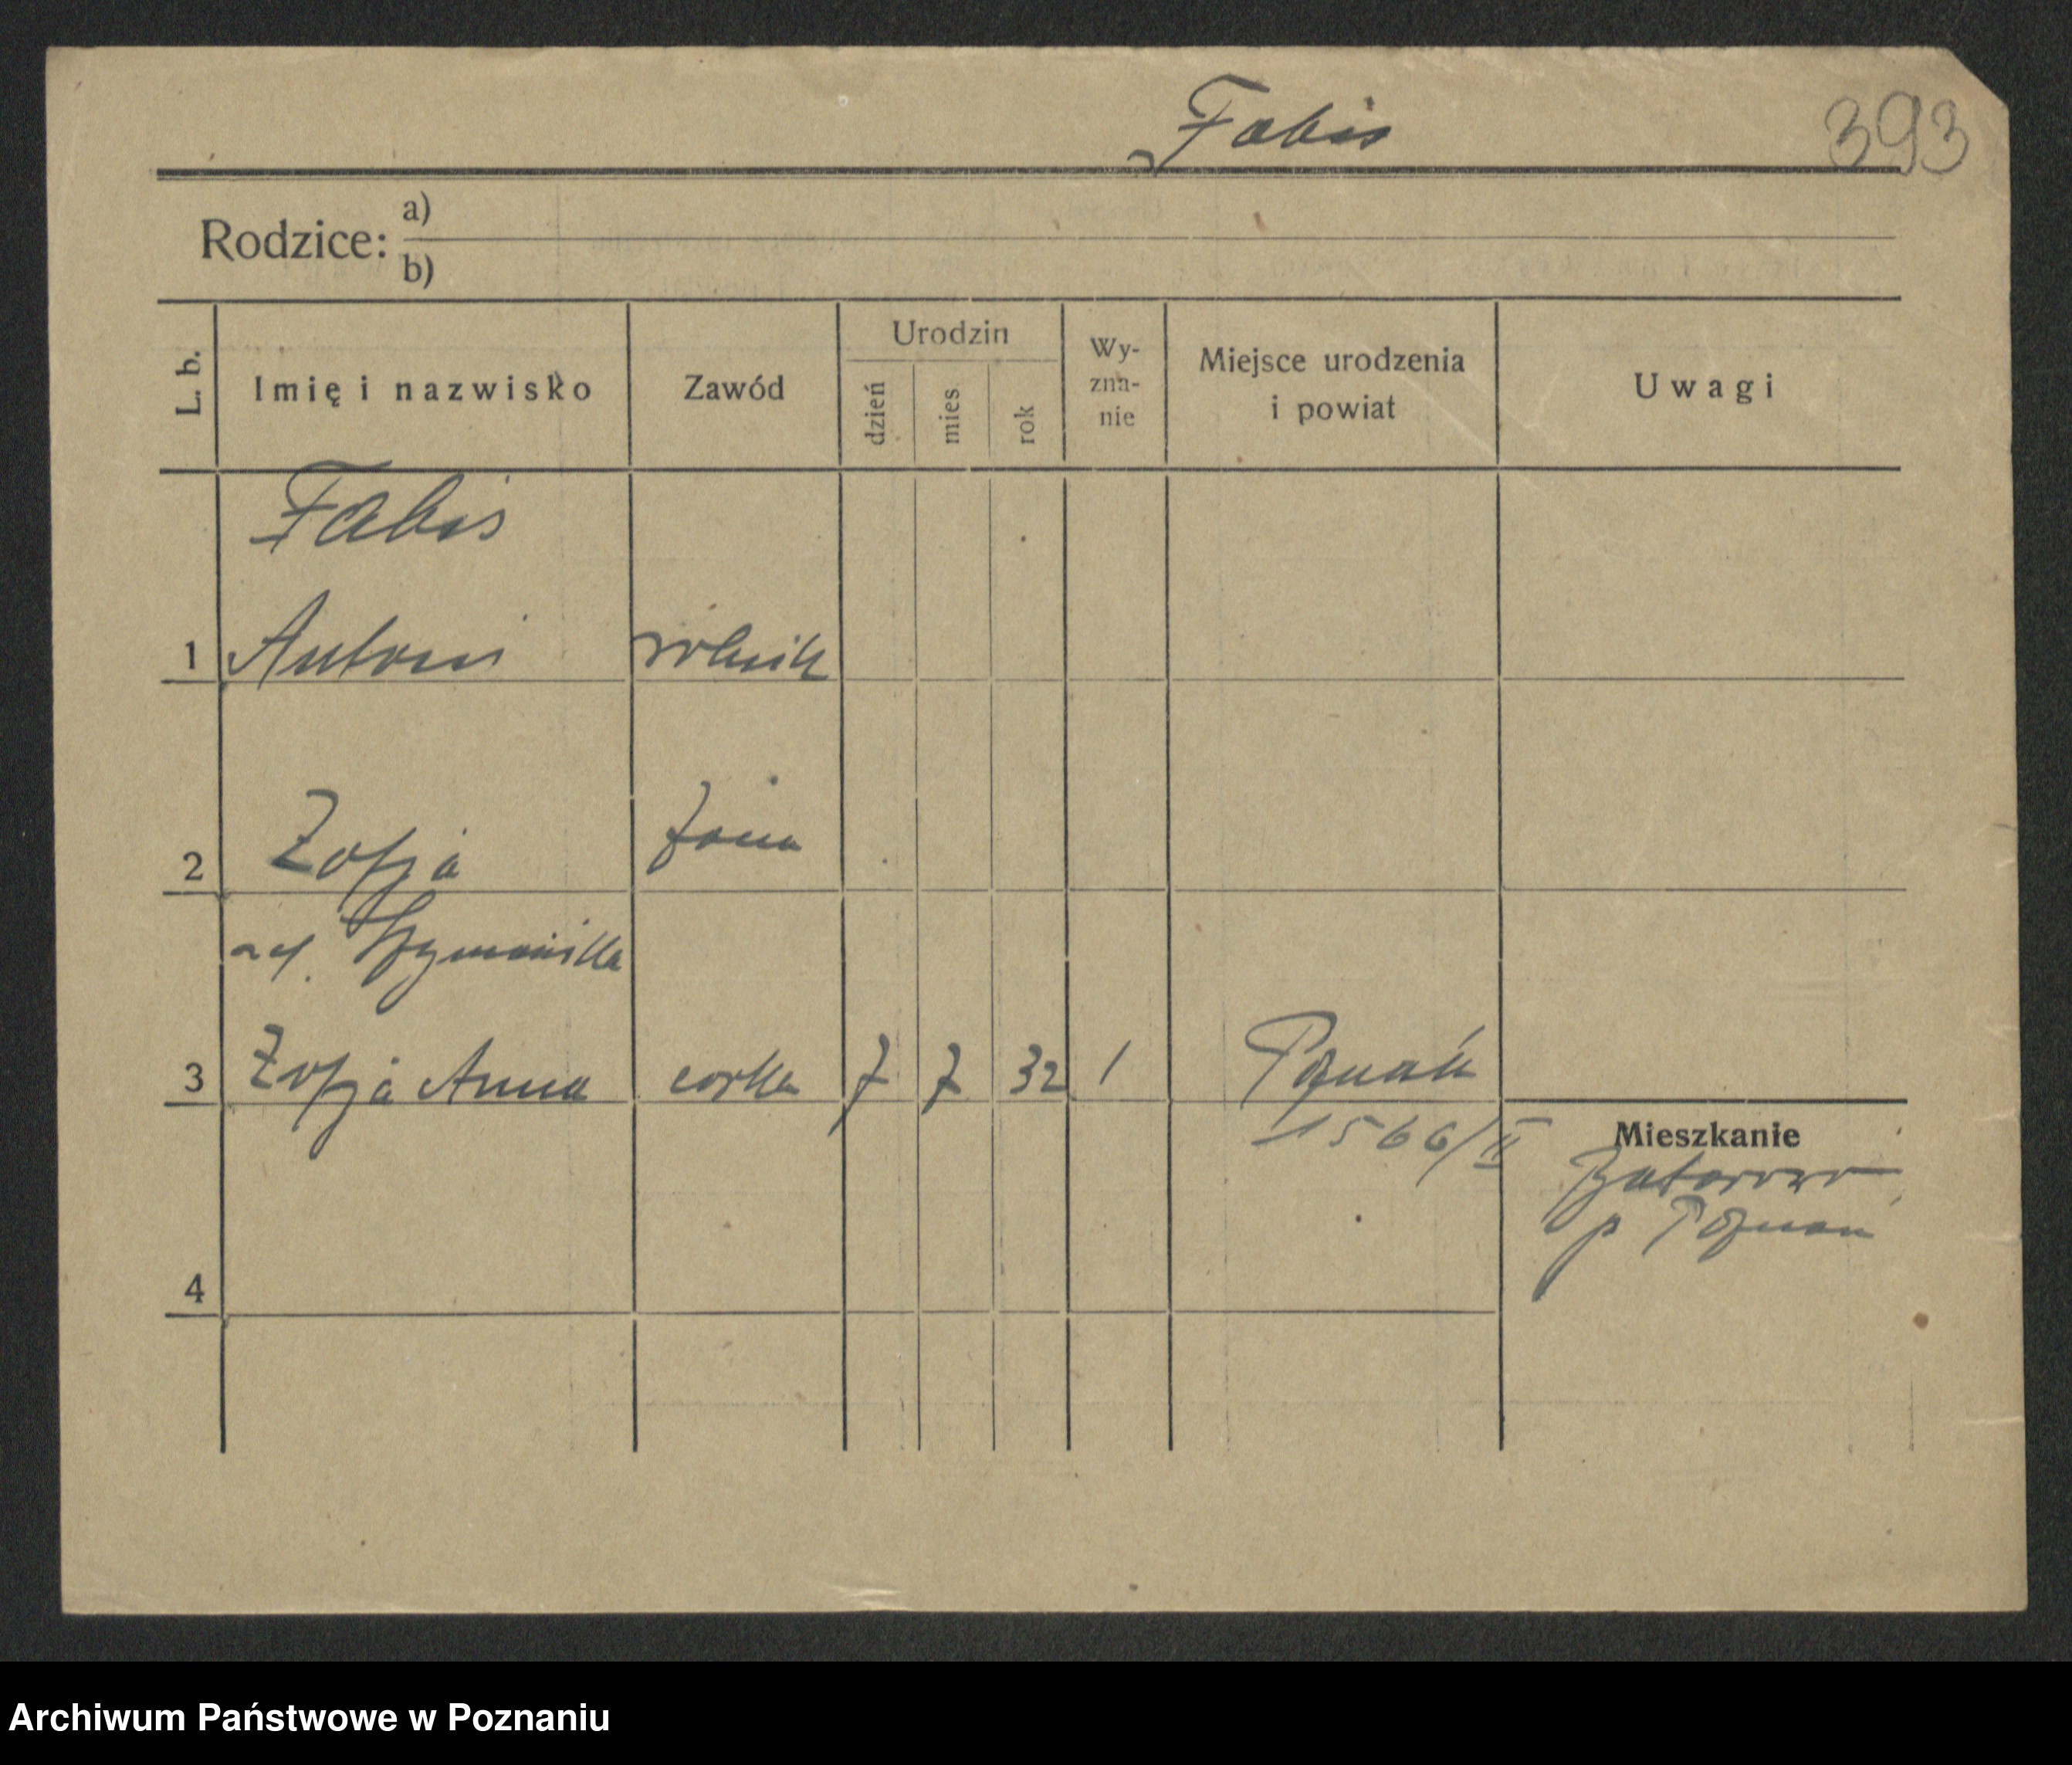 Fabiś
393
Rodzice:
a)
b)
L. b.
Imię i nazwisko
Zawód
Urodzin
dzień
mies
rok
Wy-
zna-
nie
Miejsce urodzenia
i powiat
Uwagi
Fabiś
1 Antoni rolnik
2 Zofja żona
Szymańska
3 Zofja Anna corka 7 7 32 1 Poznań
1566/II
Mieszkanie
Batorowo
p Poznań
4
Archiwum Państwowe w Poznaniu